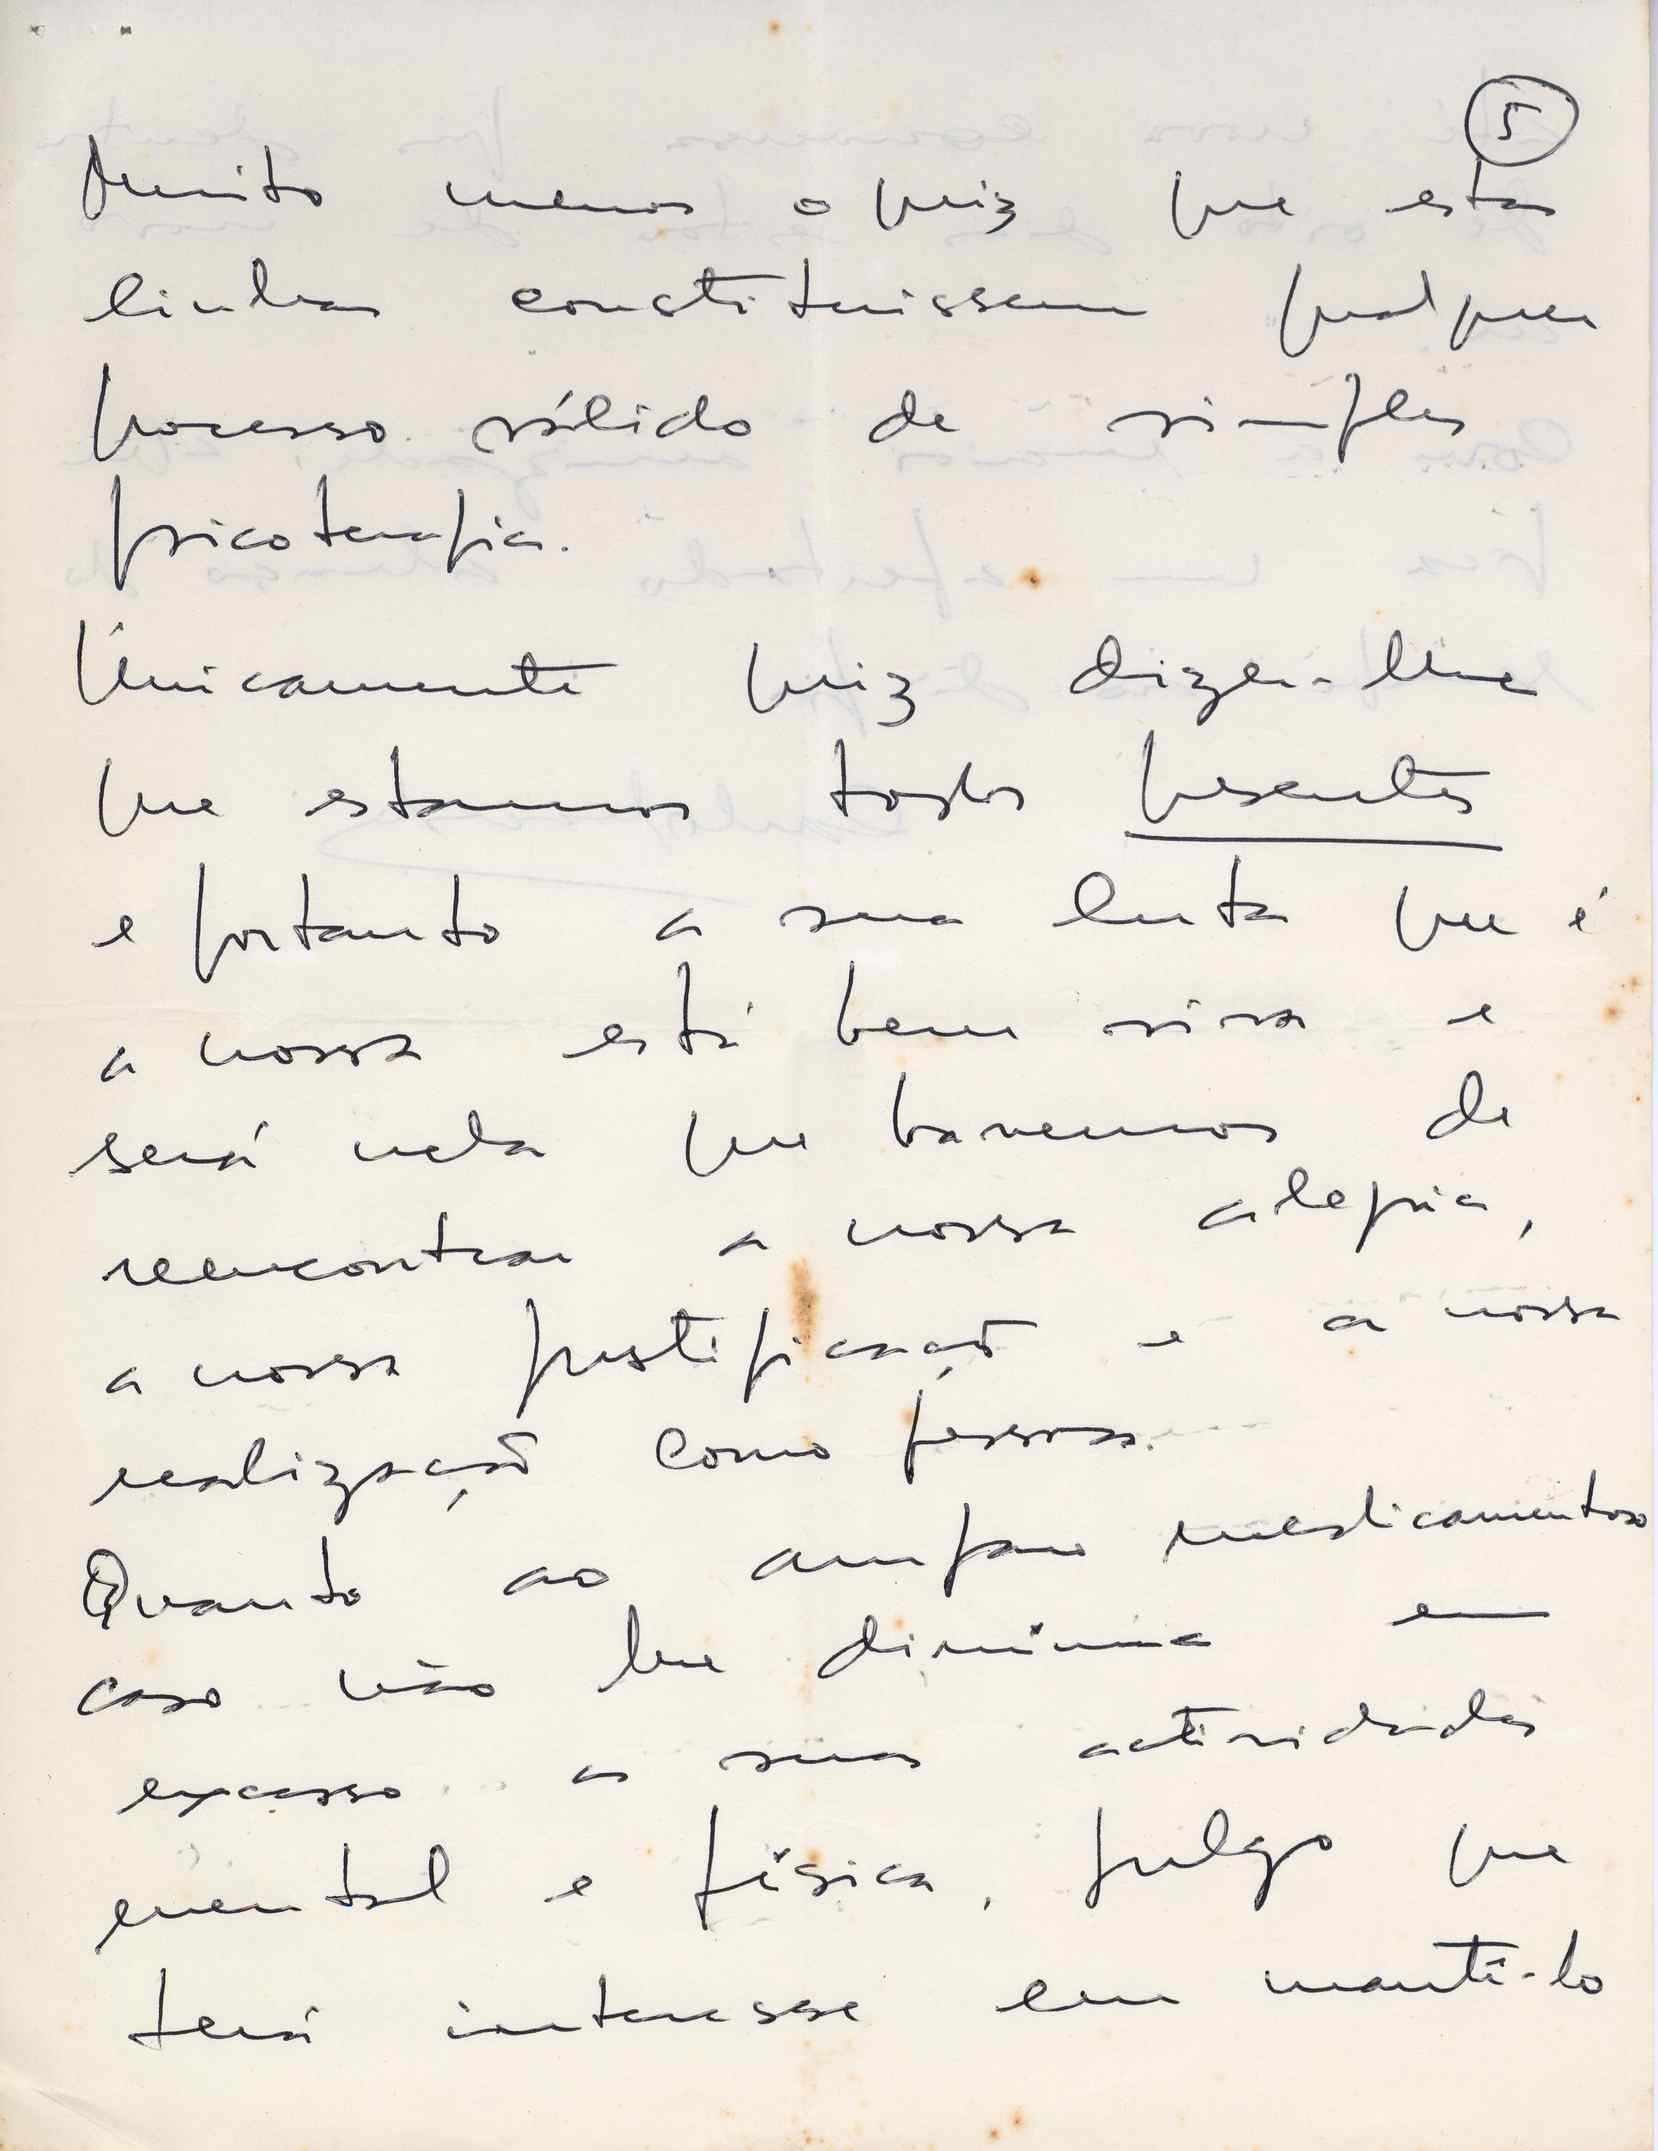 5
Muito menos o quiz que estas
linhas constituissem qualquer
processo válido de simples
psicoterapia.
Únicamente quiz dizer-lhe
que estamos todos presentes
e portanto a sua luta que é
a nossa está bem viva e
será nela que havemos de
reencontrar a nossa alegria,
a nossa justificação e a nossa
realização como pessoas.
Quanto ao amparo medicamentoso
caso não lhe diminua em
excesso as suas actividades
mental e física, julgo que
terá interesse em mantê-lo